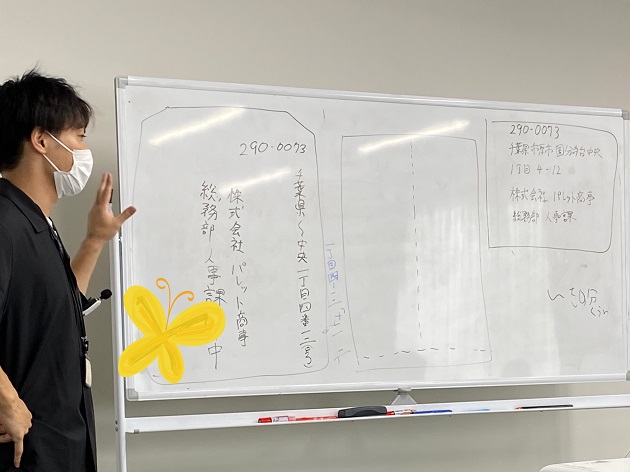 290-0073
千葉県〜中央一丁目四番一二号
株式会社 パレット商事
総務部人事課 中
一丁目四-一二
290-0073
千葉県市原市国分寺台中央
1丁目4-12
株式会社 パレット商事
総務部 人事課